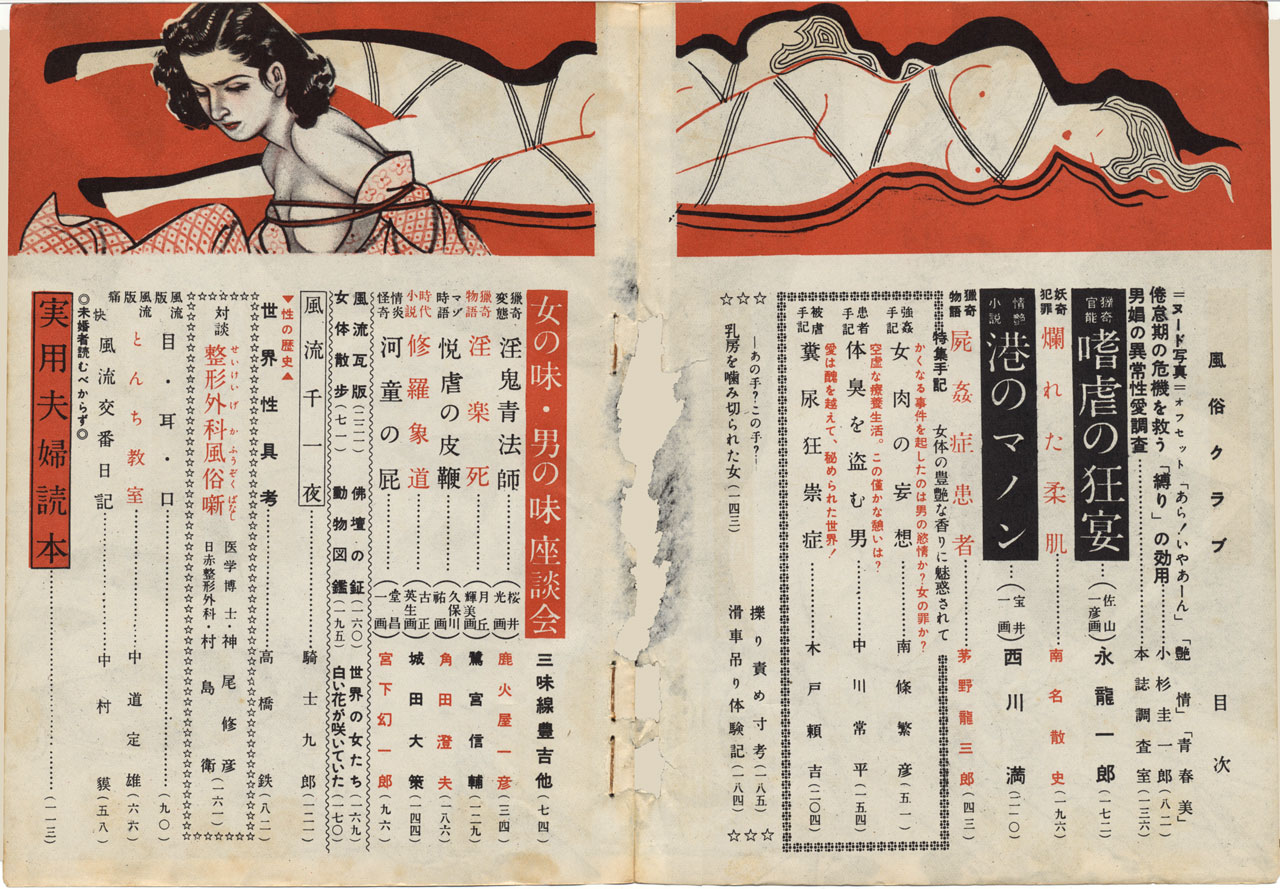 風俗クラブ 目次
=ヌード写真=オフセット「あら!いやあーん」「艶情」「青春美」
倦怠期の危機を救う「縛り」の効用……小杉圭一郎(八二)
男娼の異常性愛調査……本誌調査室(三六)
猟奇官能 嗜虐の狂宴…(佐山一彦画)永龍一郎(一七二)
妖奇犯罪 爛れた柔肌……南名散史(一九六)
情艶小説 港のマノン…(宝井一画)西川満(二一〇)
猟奇物語 屍姦症患者……茅野龍三郎(四三)
特集手記 女体の豊艶な香りに魅惑されて
かくなる事件を起したのは男の慾情か?女の罪か?
強姦手記 女肉の妄想……南條繁彦(五一)
空虚な療養生活。この僅かな憩いは?
患者手記 体臭を盗む男……中川常平(一五四)
愛は醜を越えて、秘められた世界!
被虐手記 糞尿狂崇症……木戸頼吉(二〇四)
☆☆☆ ―あの手?この手?―
擽り責め寸考(一八五)
乳房を噛み切られた女(一四三)
滑車吊り体験記(一八四)
☆☆☆
女の味・男の味座談会 三味線豊吉他(七四)
猟奇変態 淫鬼青法師……(桜井光画)鹿火屋一彦(三四)
猟奇物語 淫楽死……(月丘輝美画)鷺宮信輔(一二九)
マゾ時語 悦虐の皮鞭……(久保川祐画)角田澄夫(一八六)
時代小説 修羅象道……(古正英生画)城田大策(一四四)
情炎怪奇 河童の屁……(堂昌一画)宮下幻一郎(九六)
風流瓦版(三二) 佛壇の鉦(一六〇) 世界の女たち(一六九)
女体散歩(七一) 動物図鑑(一九五) 白い花が咲いていた(一七〇)
風流千一夜……騎士九郎(一二一)
▼性の歴史▲
世界性具考……高橋鉄(八二)
対談 整形外科風俗噺 せいけいげかふうぞくばなし
医学博士・神尾修彦
日赤整形外科・村島衛(一六一)
風流版 目・耳・口……(九〇)
風流版 とんち教室……中道定雄(六六)
痛快 風流交番日記……中村獏(五八)
◎未婚者読むべからず◎
実用夫婦読本……(一一三)